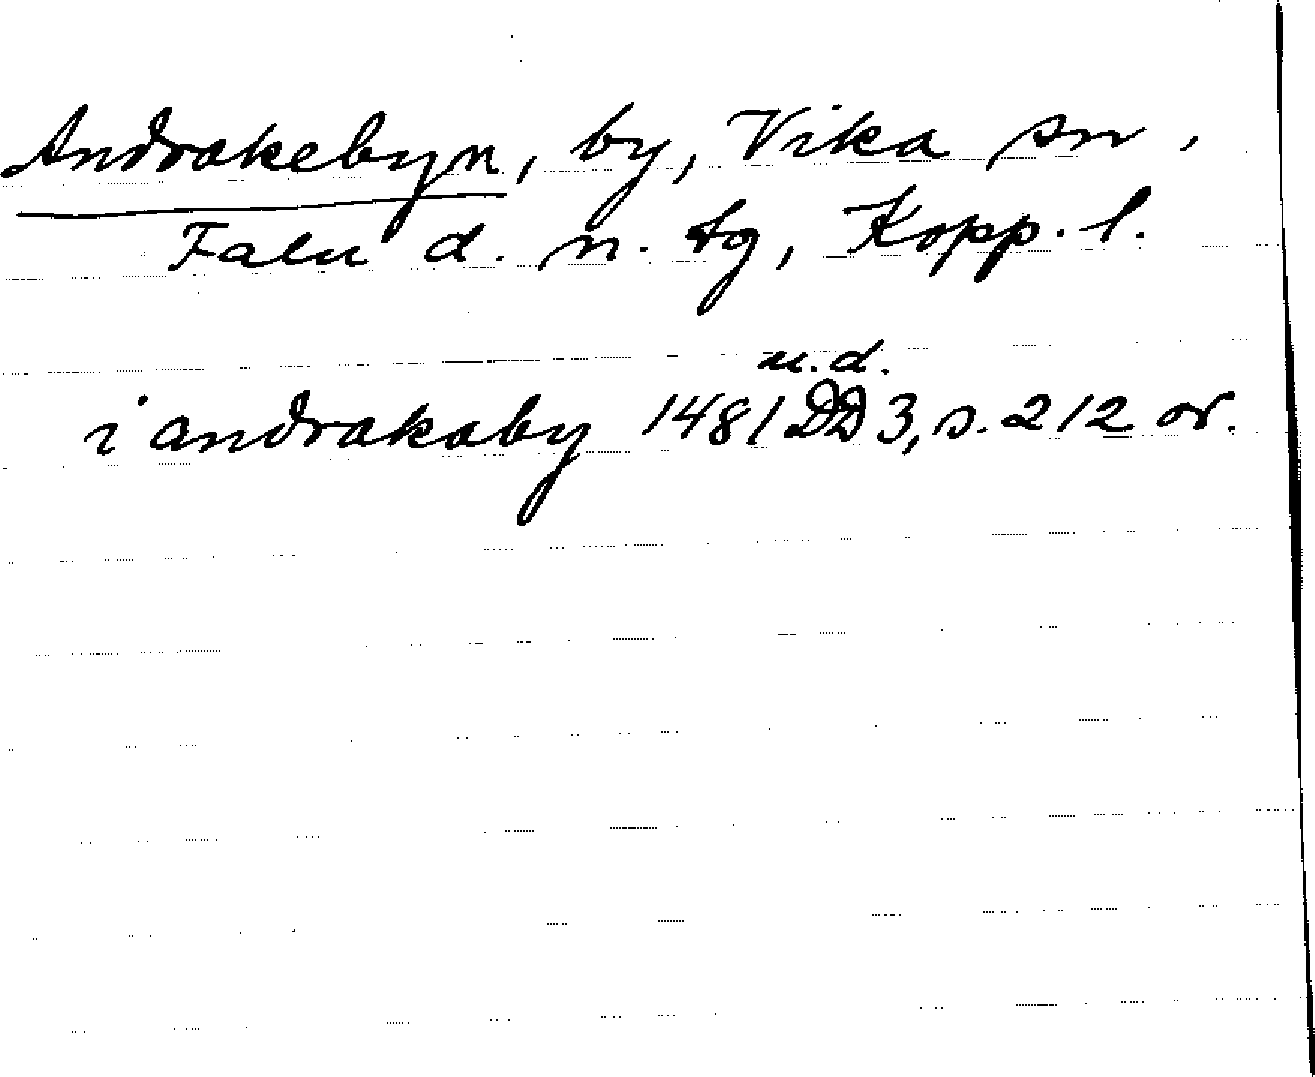 Andrakebyn, by, Vika sn,
Falu d. n. tg, Kopp. l.
u.d.
i andrakaby 1481 DD 3, s. 212 or.